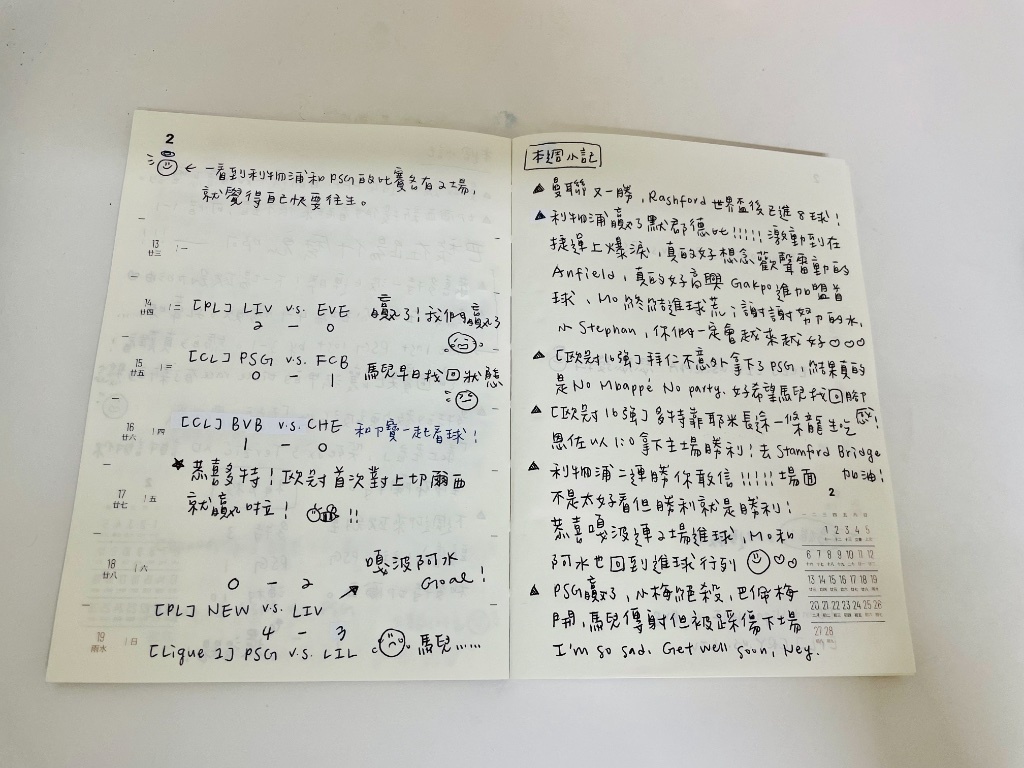 2
← 一看到利物浦和PSG的比賽各有2場,
就覺得自己快要往生。
13 一
廿三
14 二
廿四
[PL] LIV vs. EVE 贏了!我們贏了
2 - 0
15 三
廿五
[CL] PSG v.s. FCB 馬兒早日找回狀態
0 - 1
16 四
廿六
[CL] BVB v.s. CHE 和P寶一起看球!
1 - 0
★ 恭喜多特!歐冠首次對上切爾西
就贏啦! !!
17 五
廿七
18 六
廿八
嘎波阿水
Goal!
0 - 2
[PL] NEW v.s. LIV
4 - 3
19 日
雨水
[Ligue 1] PSG v.s. LIL 馬兒......
本週小記
▲ 曼聯又一勝, Rashford 世界盃後已進8球!
▲ 利物浦贏了默郡德比!!!!! 激動到在
捷運上爆淚, 真的好想念歡聲雷動的
Anfield, 真的好高興 Gakpo 進加盟首
球, Mo 終結進球荒; 謝謝努力的水,
小 Stephan, 你們一定會越來越好♡♡♡
▲ [歐冠16強] 拜仁不意外拿下了PSG, 結果真的
是 No Mbappé No party. 好希望馬兒找回腳
▲ [歐冠16強] 多特靠耶米長途一條龍生吃
恩佐以1:0 拿下主場勝利! 去 Stamford Bridge
加油!
▲ 利物浦二連勝你敢信!!!!! 場面
不是太好看但勝利就是勝利!
恭喜嘎波連2場進球, Mo 和
阿水也回到進球行列 ♡♡
▲ PSG贏了, 小梅絕殺, 巴佩梅
開, 馬兒傳射但被踩傷下場
I'm so sad. Get well soon, Ney.
2
一 二 三 四 五 六 日
1 2 3 4 5
6 7 8 9 10 11 12
13 14 15 16 17 18 19
20 21 22 23 24 25 26
27 28